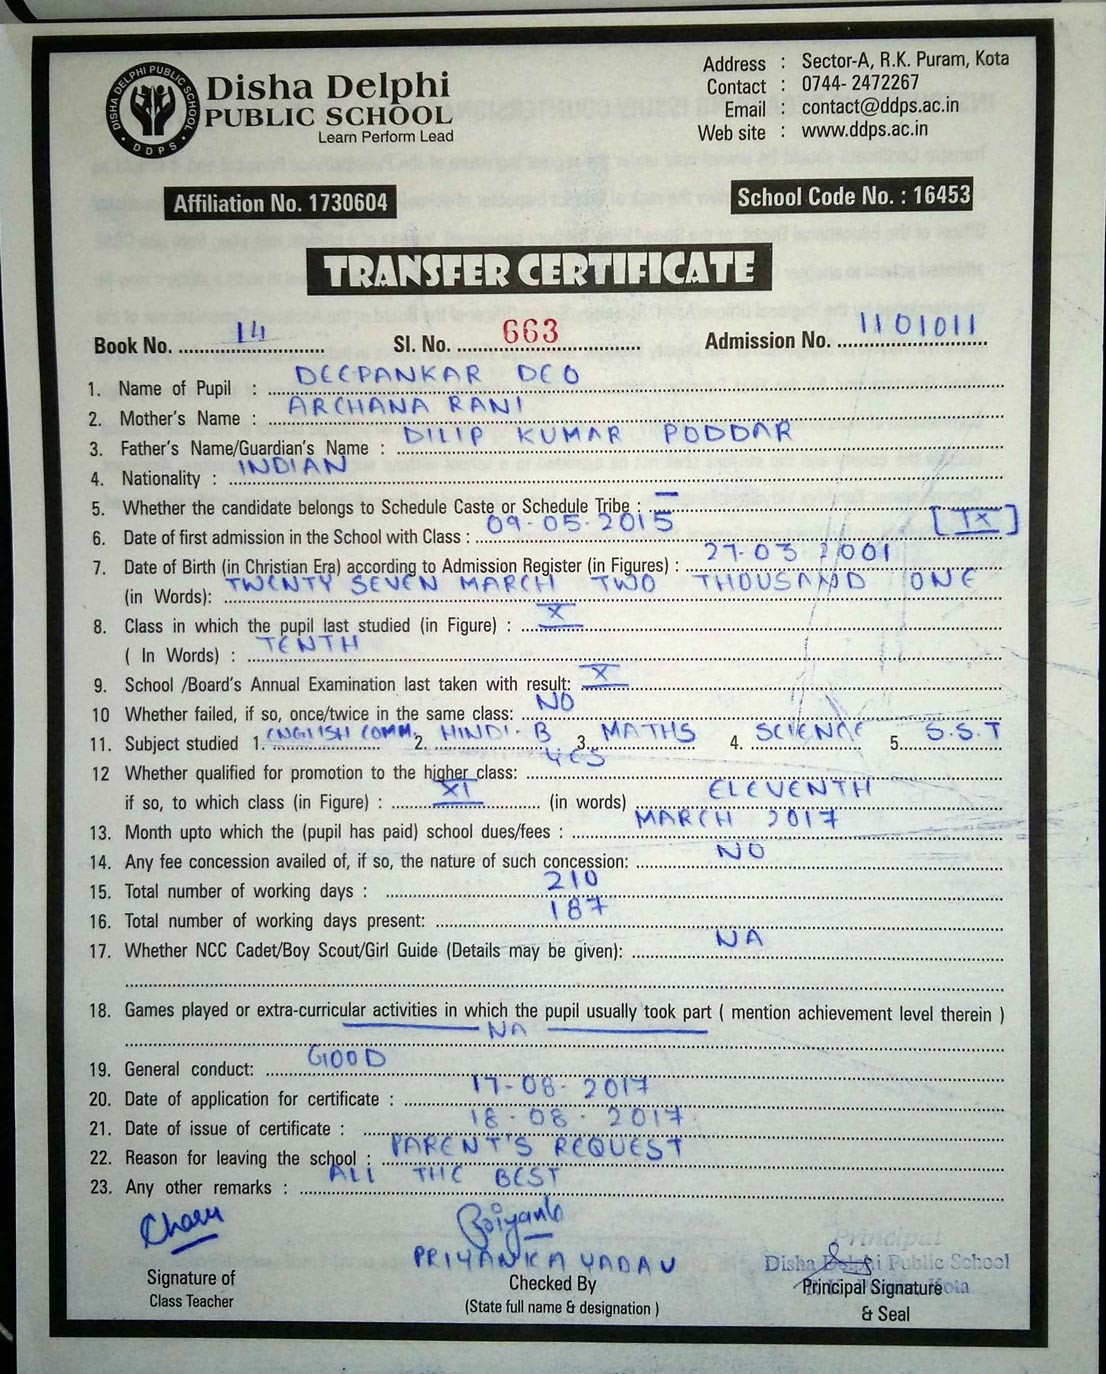 DISHA DELPHI PUBLIC SCHOOL
DDPS
Disha Delphi
PUBLIC SCHOOL
Learn Perform Lead
Address : Sector-A, R.K. Puram, Kota
Contact : 0744- 2472267
Email : contact@ddps.ac.in
Web site : www.ddps.ac.in
Affiliation No. 1730604
School Code No. : 16453
TRANSFER CERTIFICATE
Book No. 14 Sl. No. 663 Admission No. 1101011
1. Name of Pupil : DEEPANKAR DEO
2. Mother's Name : ARCHANA RANI
3. Father's Name/Guardian's Name : DILIP KUMAR PODDAR
4. Nationality : INDIAN
5. Whether the candidate belongs to Schedule Caste or Schedule Tribe : —
6. Date of first admission in the School with Class : 09-05-2015 [IX]
7. Date of Birth (in Christian Era) according to Admission Register (in Figures) : 27-03 2001
(in Words): TWENTY SEVEN MARCH TWO THOUSAND ONE
8. Class in which the pupil last studied (in Figure) : X
( In Words) : TENTH
9. School /Board's Annual Examination last taken with result: X
10 Whether failed, if so, once/twice in the same class: NO
11. Subject studied 1. ENGLISH COMM. 2. HINDI-B 3. MATHS 4. SCIENCE 5. S.S.T
12 Whether qualified for promotion to the higher class: YES
if so, to which class (in Figure) : XI (in words) ELEVENTH
13. Month upto which the (pupil has paid) school dues/fees : MARCH 2017
14. Any fee concession availed of, if so, the nature of such concession: NO
15. Total number of working days : 210
16. Total number of working days present: 187
17. Whether NCC Cadet/Boy Scout/Girl Guide (Details may be given): NA
18. Games played or extra-curricular activities in which the pupil usually took part ( mention achievement level therein )
NA
19. General conduct: GOOD
20. Date of application for certificate : 17-08-2017
21. Date of issue of certificate : 18-08-2017
22. Reason for leaving the school : PARENT'S REQUEST
23. Any other remarks : ALL THE BEST
Charu Priyanka
PRIYANKA YADAV
Principal
Disha Delphi Public School
Kota
Signature of
Class Teacher
Checked By
(State full name & designation )
Principal Signature
& Seal